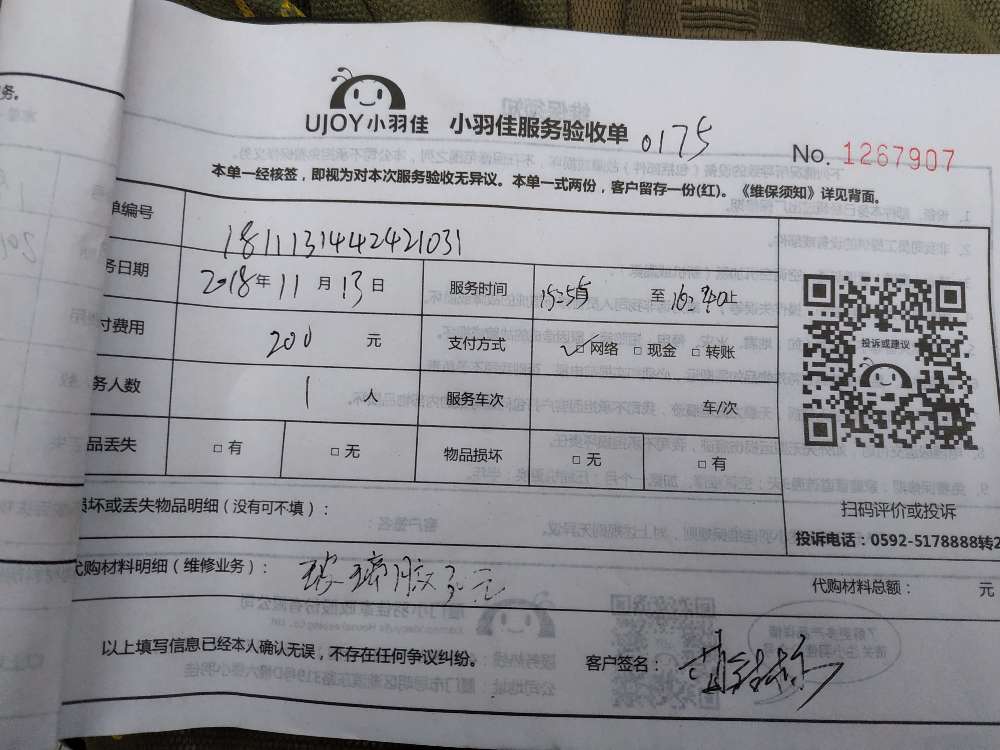 务。
UJOY小羽佳 小羽佳服务验收单 0175
No. 1267907
本单一经核签，即视为对本次服务验收无异议。本单一式两份，客户留存一份(红)。《维保须知》详见背面。
单编号 181113144242421031
务日期 2018年11月13日 服务时间 至
付费用 200 元 支付方式 ✓□网络 □现金 □转账
务人数 1 人 服务车次 车/次
品丢失 □有 □无 物品损坏 □无 □有
投诉或建议
扫码评价或投诉
损坏或丢失物品明细（没有可不填）：
投诉电话：0592-5178888转2
代购材料明细（维修业务）： 玻璃胶30元
代购材料总额： 元
以上填写信息已经本人确认无误，不存在任何争议纠纷。
客户签名：